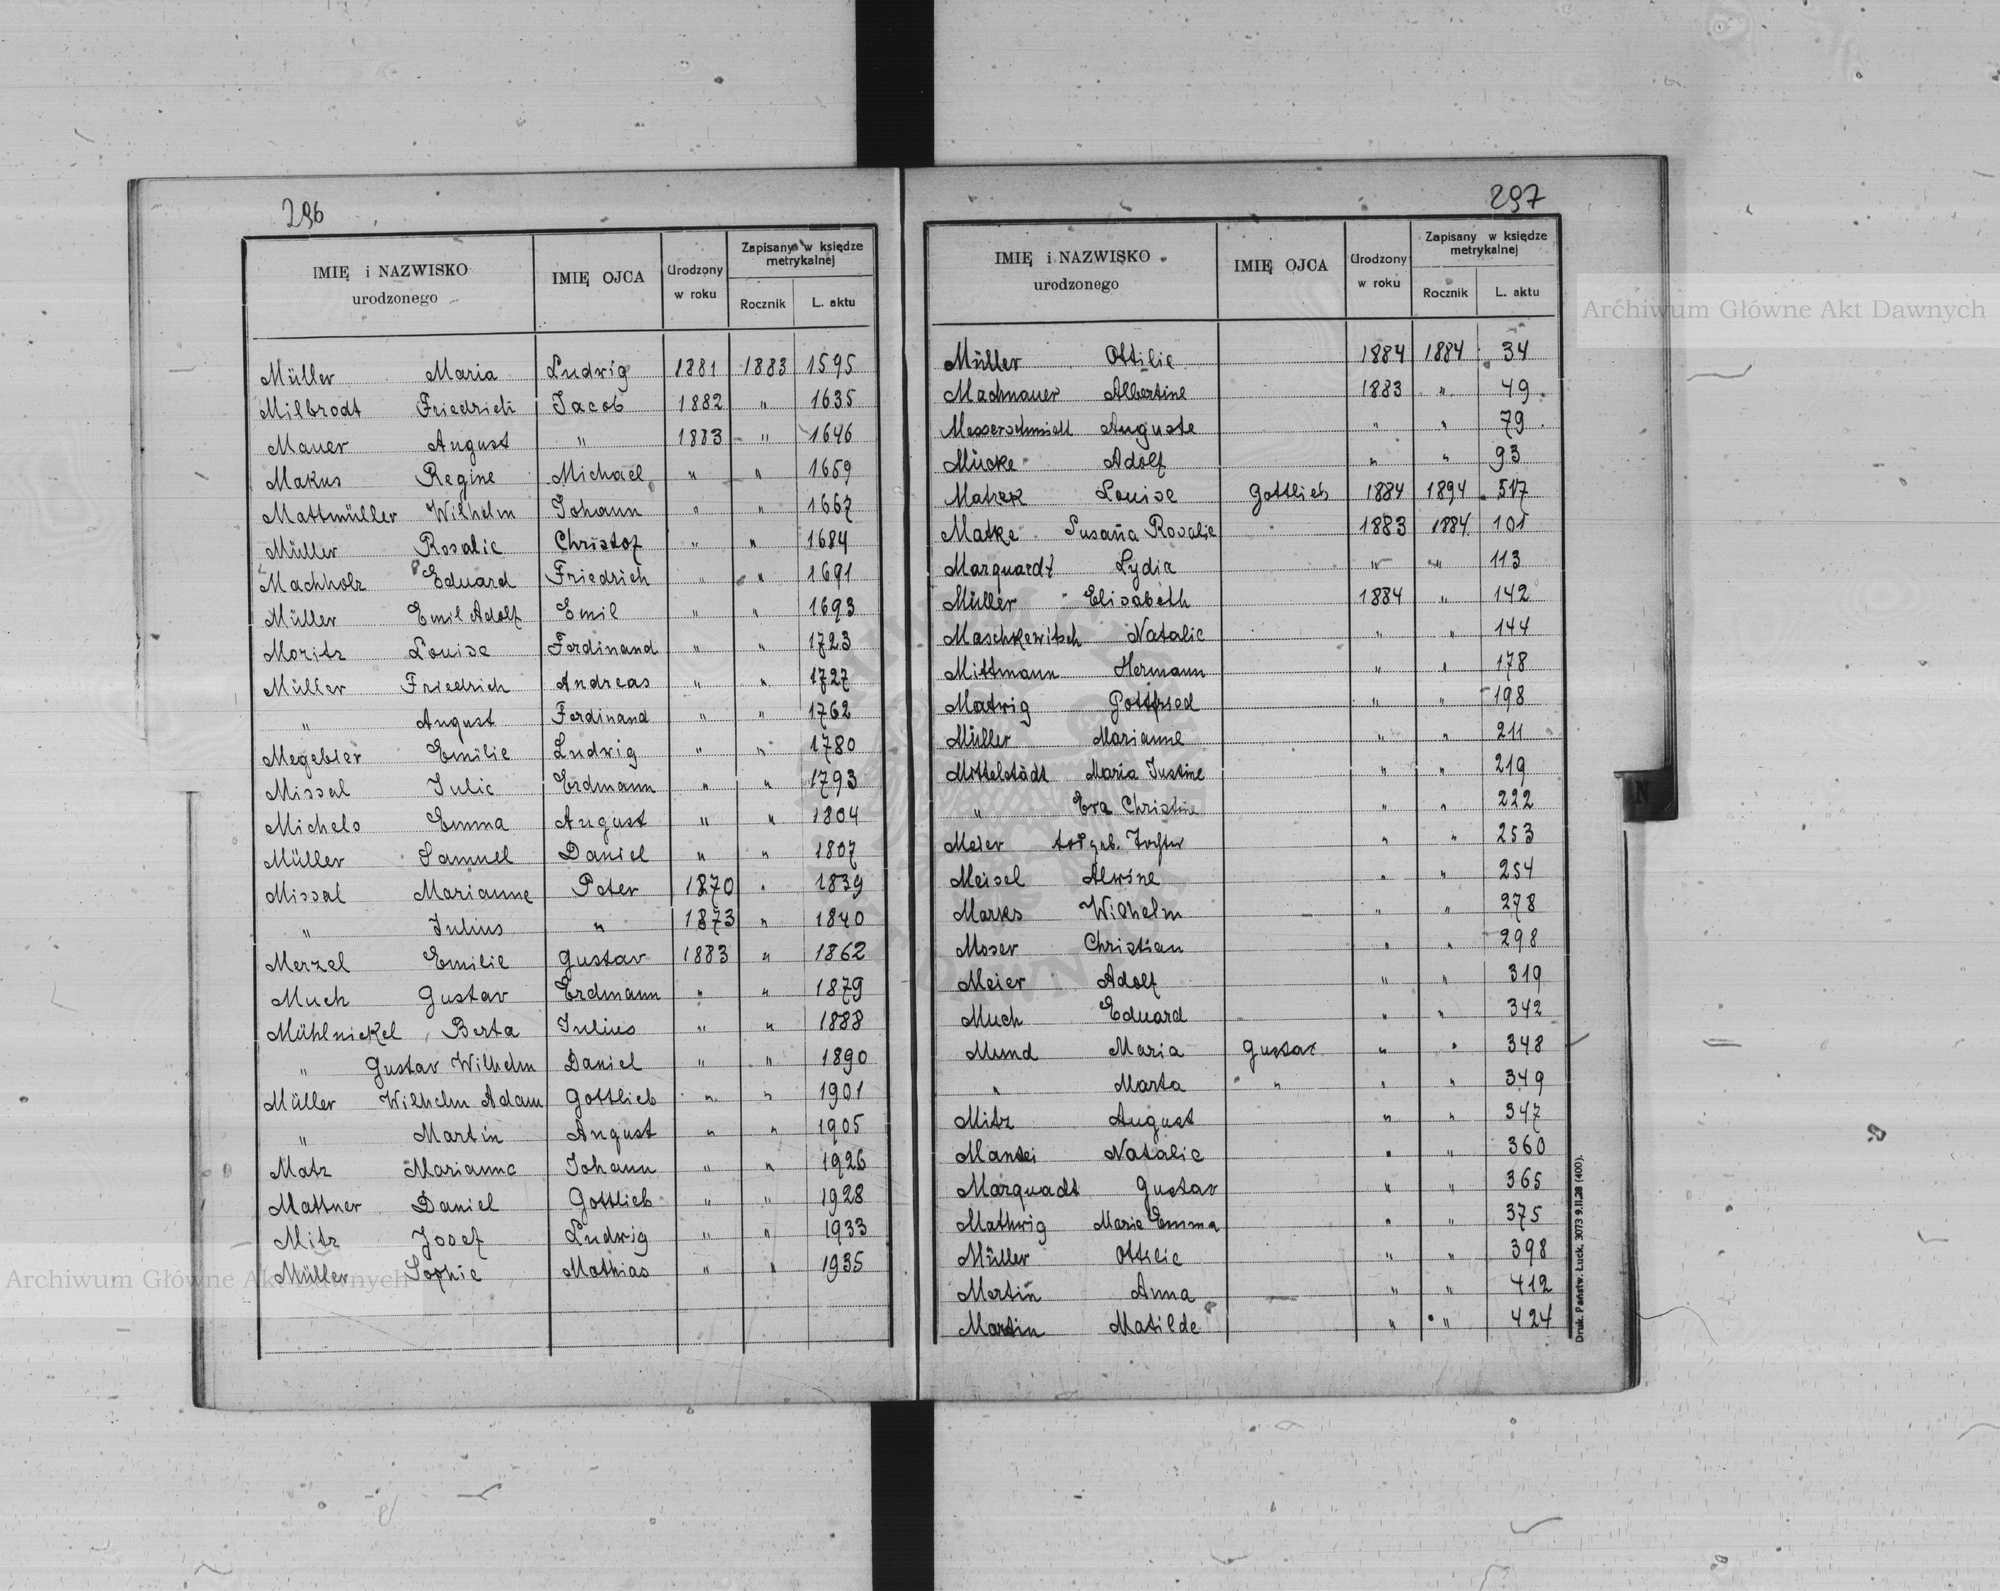 296
IMIĘ i NAZWISKO urodzonego | IMIĘ OJCA | Urodzony w roku | Zapisany w księdze metrykalnej
Rocznik | L. aktu
Müller Maria | Ludwig | 1881 | 1883 | 1595
Milbrodt Friedrich | Jacob | 1882 | " | 1635
Mauer August | " | 1883 | " | 1646
Makus Regine | Michael | " | " | 1659
Mattmüller Wilhelm | Johann | " | " | 1667
Müller Rosalie | Christof | " | " | 1684
Machholz Eduard | Friedrich | " | " | 1691
Müller Emil Adolf | Emil | " | " | 1693
Moritz Louise | Ferdinand | " | " | 1723
Müller Friedrich | Andreas | " | " | 1727
" August | Ferdinand | " | " | 1762
Megebier Emilie | Ludwig | " | " | 1780
Missal Julie | Erdmann | " | " | 1793
Michels Emma | August | " | " | 1804
Müller Samuel | Daniel | " | " | 1807
Missal Marianne | Peter | 1870 | " | 1839
" Julius | " | 1873 | " | 1840
Merzel Emilie | Gustav | 1883 | " | 1862
Much Gustav | Erdmann | " | " | 1879
Mühlnickel Berta | Julius | " | " | 1888
" Gustav Wilhelm | Daniel | " | " | 1890
Müller Wilhelm Adam | Gottlieb | " | " | 1901
" Martin | August | " | " | 1905
Matz Marianna | Johann | " | " | 1926
Mattner Daniel | Gottlieb | " | " | 1928
Mitz Josef | Ludwig | " | " | 1933
Müller Sophie | Mathias | " | " | 1935
297
IMIĘ i NAZWISKO urodzonego | IMIĘ OJCA | Urodzony w roku | Zapisany w księdze metrykalnej
Rocznik | L. aktu
Müller Ottilie | 1884 | 1884 | 34
Machnauer Albertine | 1883 | " | 49
Messerschmidt Auguste | " | " | 79
Mücke Adolf | " | " | 93
Louise | Gottlieb | 1884 | 1894 | 517
Matke Susaña Rosalie | 1883 | 1884 | 101
Marquardt Lydia | " | " | 113
Müller Elisabeth | 1884 | " | 142
Maschkewitsch Natalie | " | " | 144
Mittmann Hermann | " | " | 178
Madwig Gottfried | " | " | 198
Müller Marianne | " | " | 211
Mittelstädt Maria Justine | " | " | 219
" Eva Christine | " | " | 222
Meier totgeb. Tochter | " | " | 253
Meisel Alwine | " | " | 254
Marks Wilhelm | " | " | 278
Moser Christian | " | " | 298
Meier Adolf | " | " | 319
Much Eduard | " | " | 342
Mund Maria | Gustav | " | " | 348
" Marta | " | " | " | 349
Mitz August | " | " | 347
Natalie | " | " | 360
Marquadt Gustav | " | " | 365
Mathwig Marie Emma | " | " | 375
Müller Ottilie | " | " | 398
Mertin Anna | " | " | 412
Martin Matilde | " | " | 424
Druk. Państw. Łuck. 3073 9.II.28 (400).
N
Archiwum Główne Akt Dawnych
Archiwum Główne Akt Dawnych